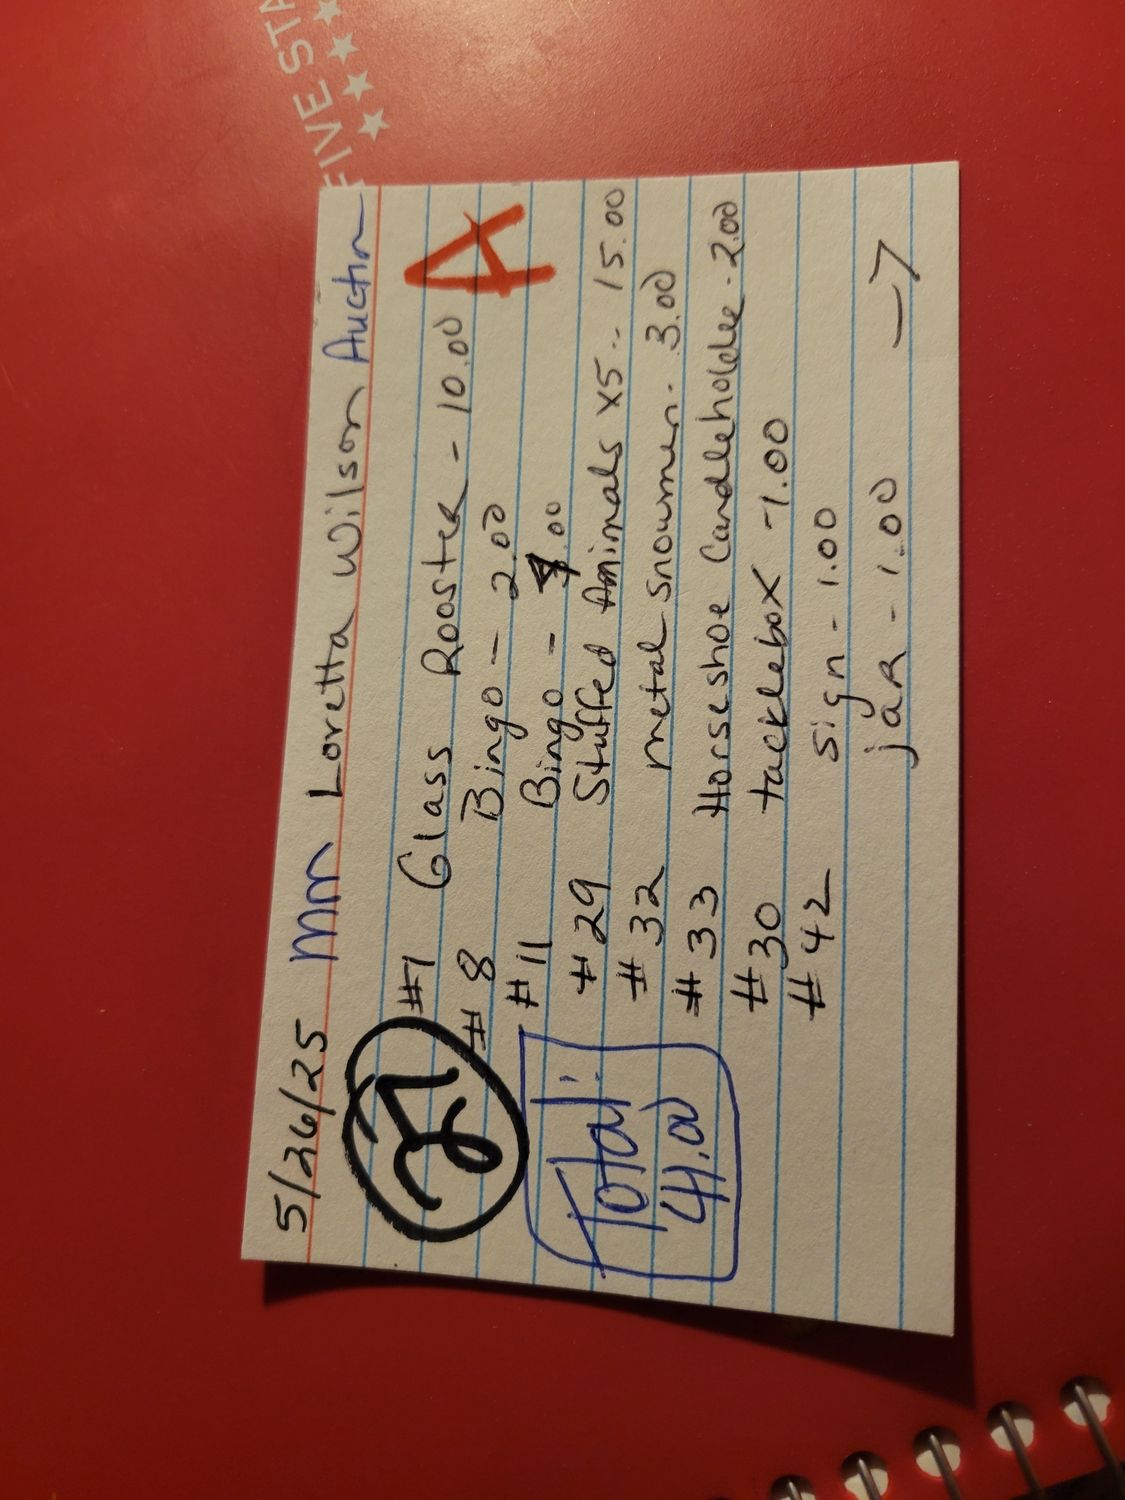 FIVE STA
5/26/25 mm Loretta Wilson Auction
#1 Glass Rooster - 10.00
A
#8 Bingo - 2.00
#11 Bingo - .00
#29 Stuffed Animals x5.. 15.00
#32 metal snowmen.. 3.00
#33 Horseshoe Candleholder. 2.00
#30 tacklebox - 1.00
#42 sign - 1.00
jar - 1.00 →
Total:
41.00